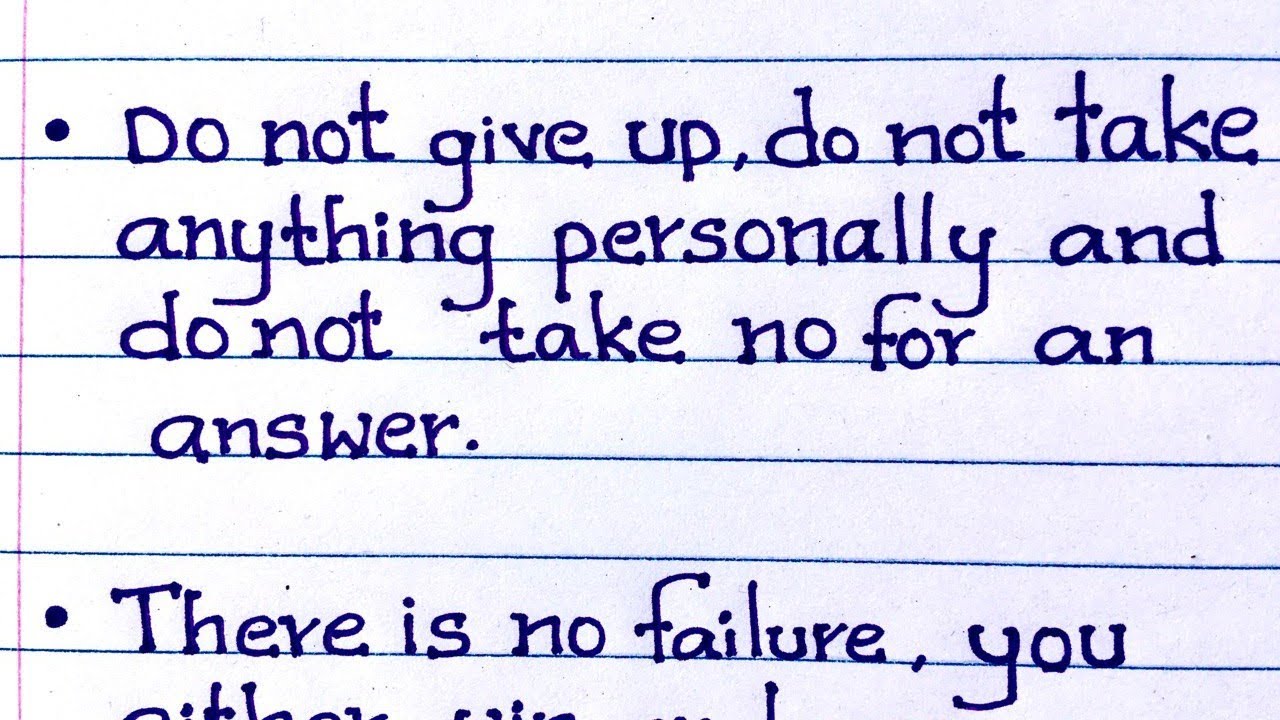 • Do not give up, do not take
anything personally and
do not take no for an
answer.
• There is no failure, you
either win